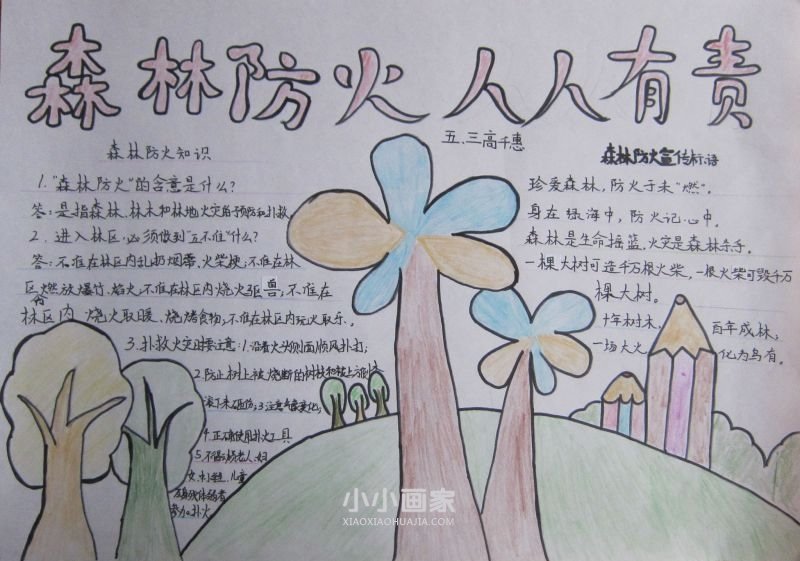 森林防火 人人有责
五、三高千惠
森林防火知识
1.“森林防火”的含意是什么？
答：是指森林、林木和林地火灾的预防和扑救。
2．进入林区，必须做到“五不准”什么？
答：不准在林区内乱扔烟蒂、火柴梗；不准在林
区燃放爆竹、焰火；不准在林区内烧火驱兽；不准在
林区内 烧火取暖、烧烤食物；不准在林区内玩火取乐。
3.扑救火灾时要注意：1.沿着火头侧面顺风扑打；
2.防止树上被烧断的树枝和
滚木砸伤；3.注意
4.正确使用扑火工具
5.不得动员老人、妇
女、儿童
参加扑火
森林防火宣传标语
珍爱森林，防火于未“燃”。
身在绿海中，防火记心中。
森林是生命摇篮，火灾是森林杀手。
一棵大树可造千万根火柴，一根火柴可毁千万
棵大树。
十年树木， 百年成林；
一场大火 化为乌有。
小小画家
XIAOXIAOHUAJIA.COM